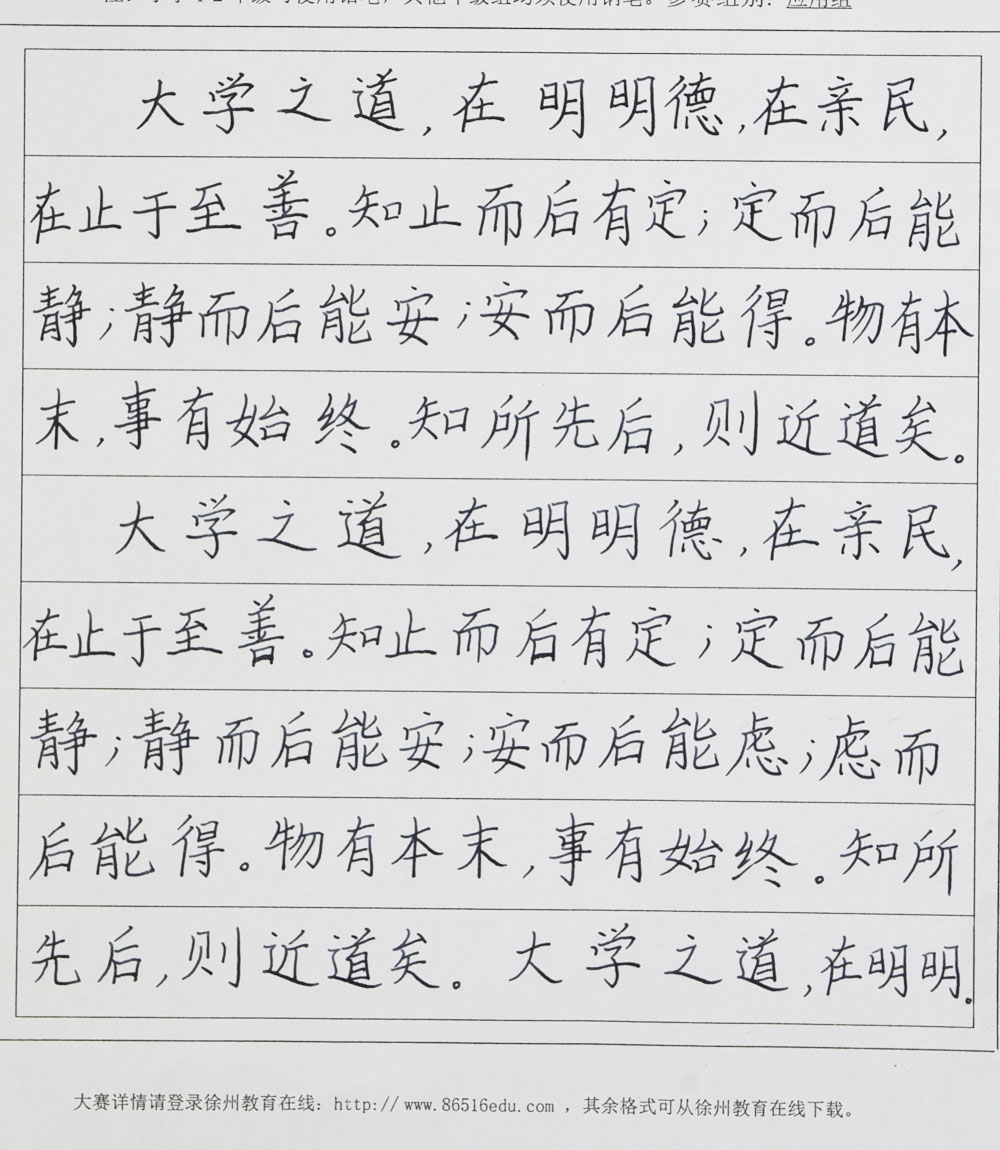 注：小学1-2年级可使用铅笔，其他年级组均须使用钢笔。参赛组别：应用组
大学之道,在明明德,在亲民,
在止于至善。知止而后有定;定而后能
静;静而后能安;安而后能得。物有本
末,事有始终。知所先后,则近道矣。
大学之道,在明明德,在亲民,
在止于至善。知止而后有定;定而后能
静;静而后能安;安而后能虑;虑而
后能得。物有本末,事有始终。知所
先后,则近道矣。大学之道,在明明。
大赛详情请登录徐州教育在线：http://www.86516edu.com ，其余格式可从徐州教育在线下载。